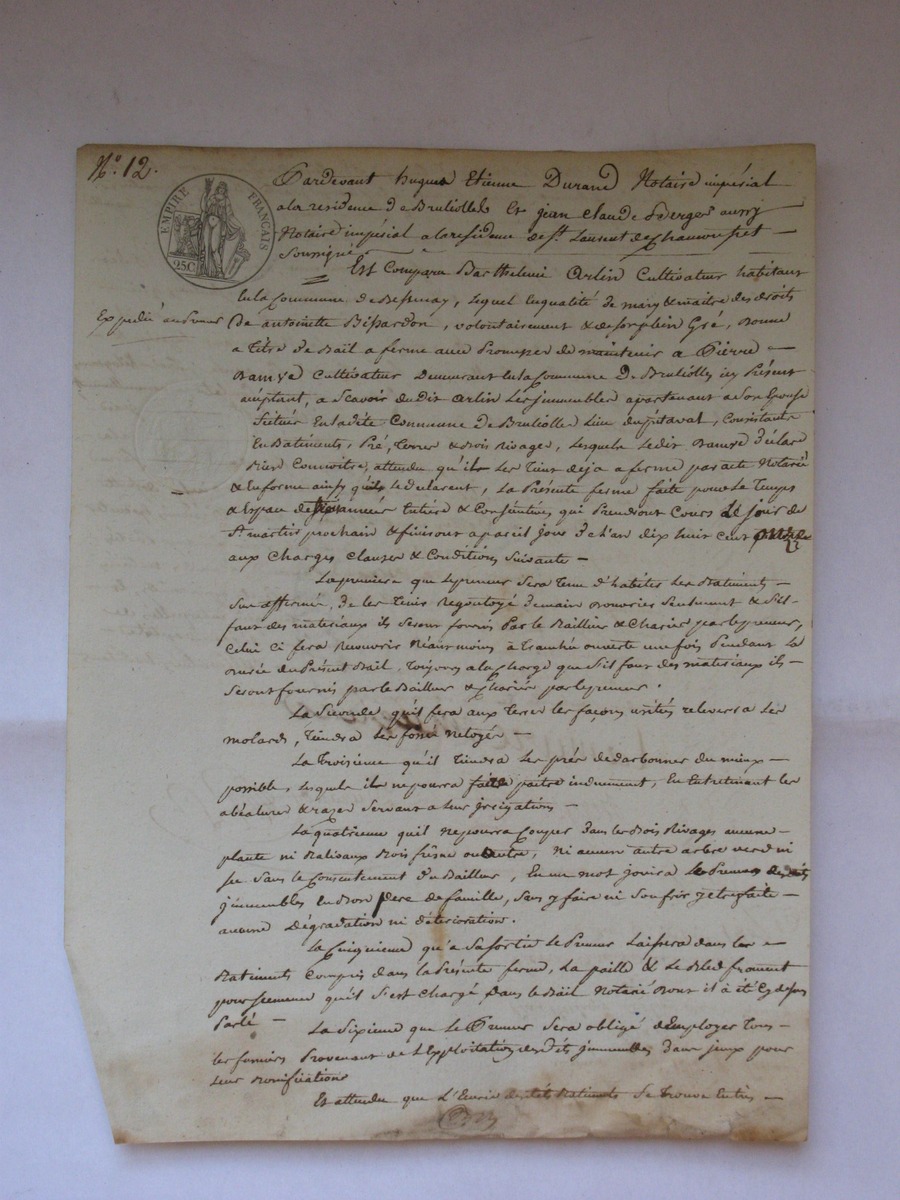 N.o 12.
EMPIRE FRANÇAIS
25C
Pardevant hugues Etienne Durand Notaire impérial
a la residence de Brulioles Et jean Claude aussy
Notaire impérial a la residence de St. Laurent de Chamousset
Soussigné
Est Comparu Barthelemi Arlin Cultivateur habitant
En la Commune de Bessenay, lequel En qualité de mary & maitre des droits
Expedié au Preneur
De antoinette Bissardon, volontairement & de son plein Gré, Donne
a Titre de Bail a ferme avec Promesse de maintenir a Pierre
Cultivateur Demeurant En la Commune De Brulioles icy Présent
aceptant, a Scavoir du dit Arlin Les jmmeubles apartenant a Son Epouse
Situés En la dite Commune de Brulioles Lieu du pitaval, Consistants
En Batiments, Pré, Terres & Bois Rivages, lesquels Le dit déclare
Bien Connoitre, attendu qu'il Les Tient déja a ferme par acte Notarié
& En forme ainsy qu'ils le declarent, La Présente ferme faite pour Le Temps
& Espace de années Entieres & Consécutives qui Prendront Cours Le jour de
St. martin prochain & finiront a pareil jour de l'an dix huit Cent
aux Charges Clauses & Conditions Suivante
La premiere que Le preneur Sera Tenu d'habiter Les Batiments
Sus affermés, de les Tenir Regoutoyé de main Douvriers Seulement & S'il
faut des materiaux ils Seront fournis Par le Bailleur & Chariés par le preneur,
Celui Ci fera Recouvrir Néanmoins a Tranchée ouverte une fois Pendant La
Durée du Présent Bail, Toujours a la Charge que S'il faut des materiaux ils
Seront fournis par le Bailleur & Chariés par le preneur.
La Seconde qu'il fera aux Terres les façons usitées relevera Les
molards, Tiendra Les fossés Netoyés
La Troisieme qu'il Tiendra Les prés dedarbonnés du mieux
possible, Lesquels il ne poura faire paitre indument, En Entretenant les
& razes Servant a Leur jrrigations
La quatrieme quil Ne poura Couper dans les Bois Rivages aucune
plante ni Balivaux Bois frêsne ou autre, Ni aucun autre arbre verd ni
Sec Sans le Consentement du Bailleur, En un mot jouira Le Preneur des dits
jmmeubles En Bon Pere de famille, Sans y faire ni Soufrir y etre faite
aucune Dégradation ni déterioration.
La Cinquieme qu'a Sa Sortie Le Preneur Laissera dans les
Batiments Compris dans la Présente ferme, La paille & Le Bled froment
pour Semence qu'il S'est Chargé Dans le Bail Notarié Dont il a été Cy dessus
Parlé
La Sixieme que Le Preneur Sera obligé d'Employer Tous
les fumiers Provenant de L'Exploitation des dits jmmeubles dans jceux pour
Leur Bonification
Et attendu que L'Ecurie des dits Batiments Se Trouve Entre